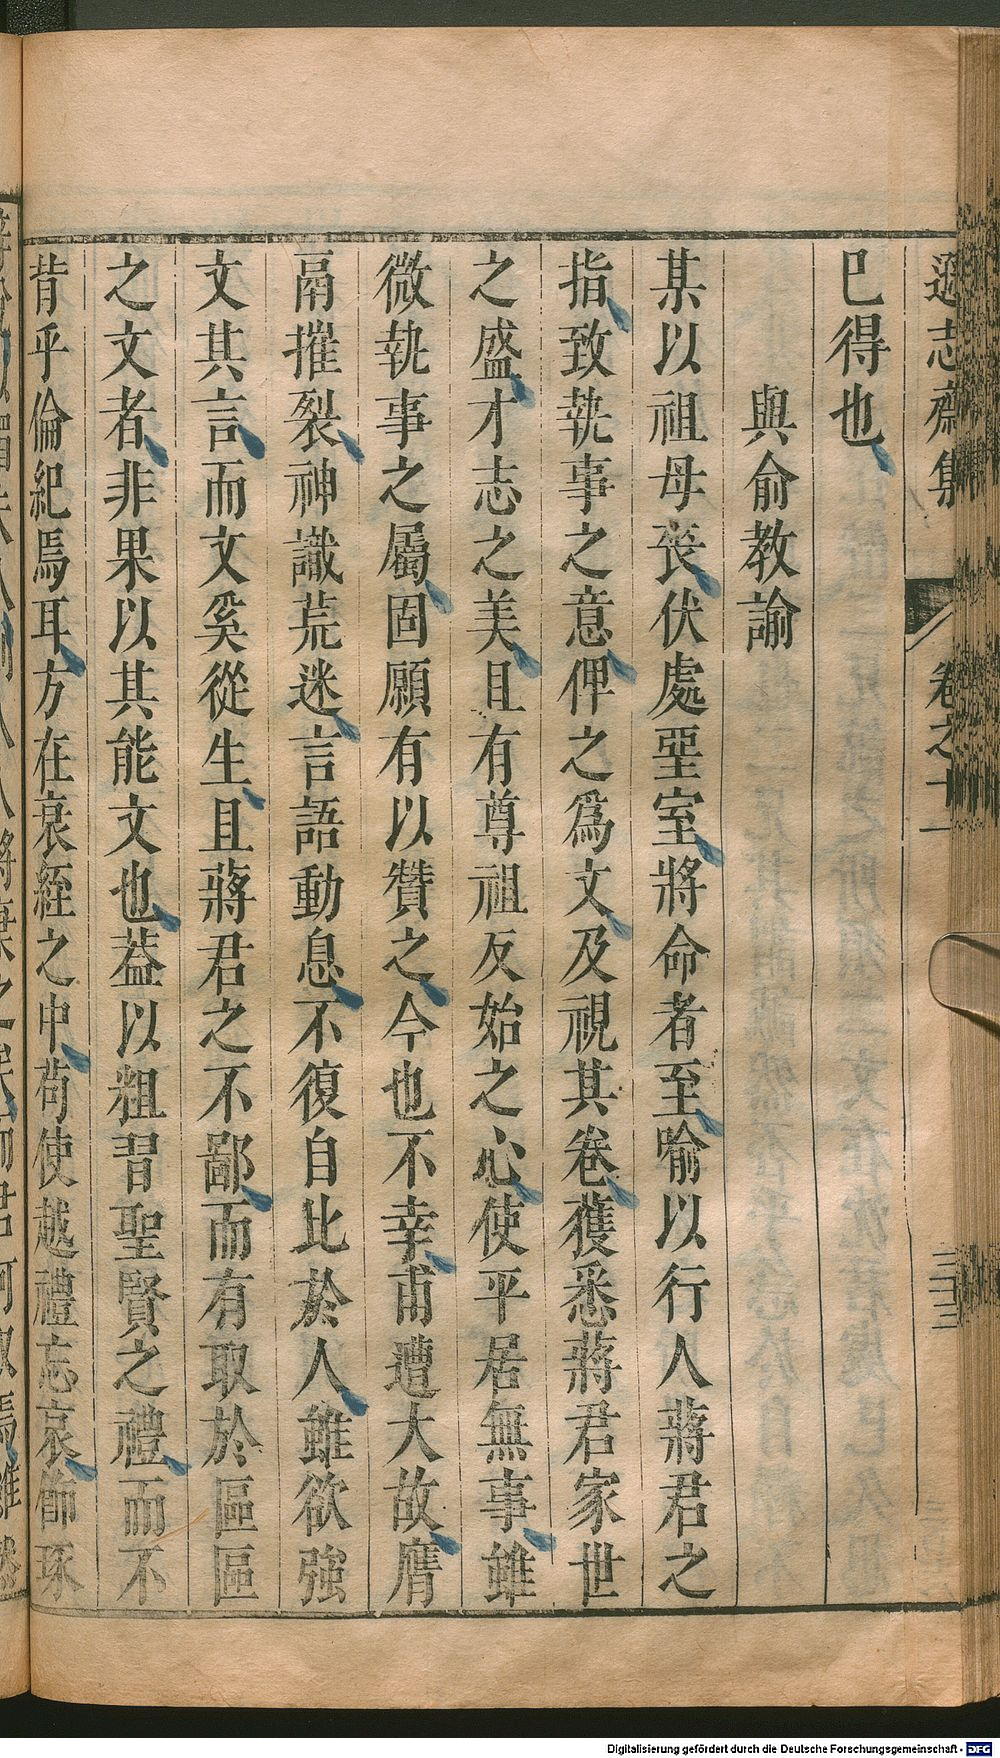 遜志齋集 卷之十一 三十三
已得也
與俞教諭
某以祖母喪伏處堊室將命者至喻以行人蔣君之
指致執事之意俾之為文及視其卷獲悉蔣君家世
之盛才志之美且有尊祖反始之心使平居無事雖
微執事之屬固願有以贊之今也不幸甫遭大故膺
鬲摧裂神識荒迷言語動息不復自比於人雖欲強
文其言而文奚從生且蔣君之不鄙而有取於區區
之文者非果以其能文也葢以粗習聖賢之禮而不
背乎倫紀焉耳方在衰絰之中苟使越禮忘哀飾琢
Digitalisierung gefördert durch die Deutsche Forschungsgemeinschaft - DFG